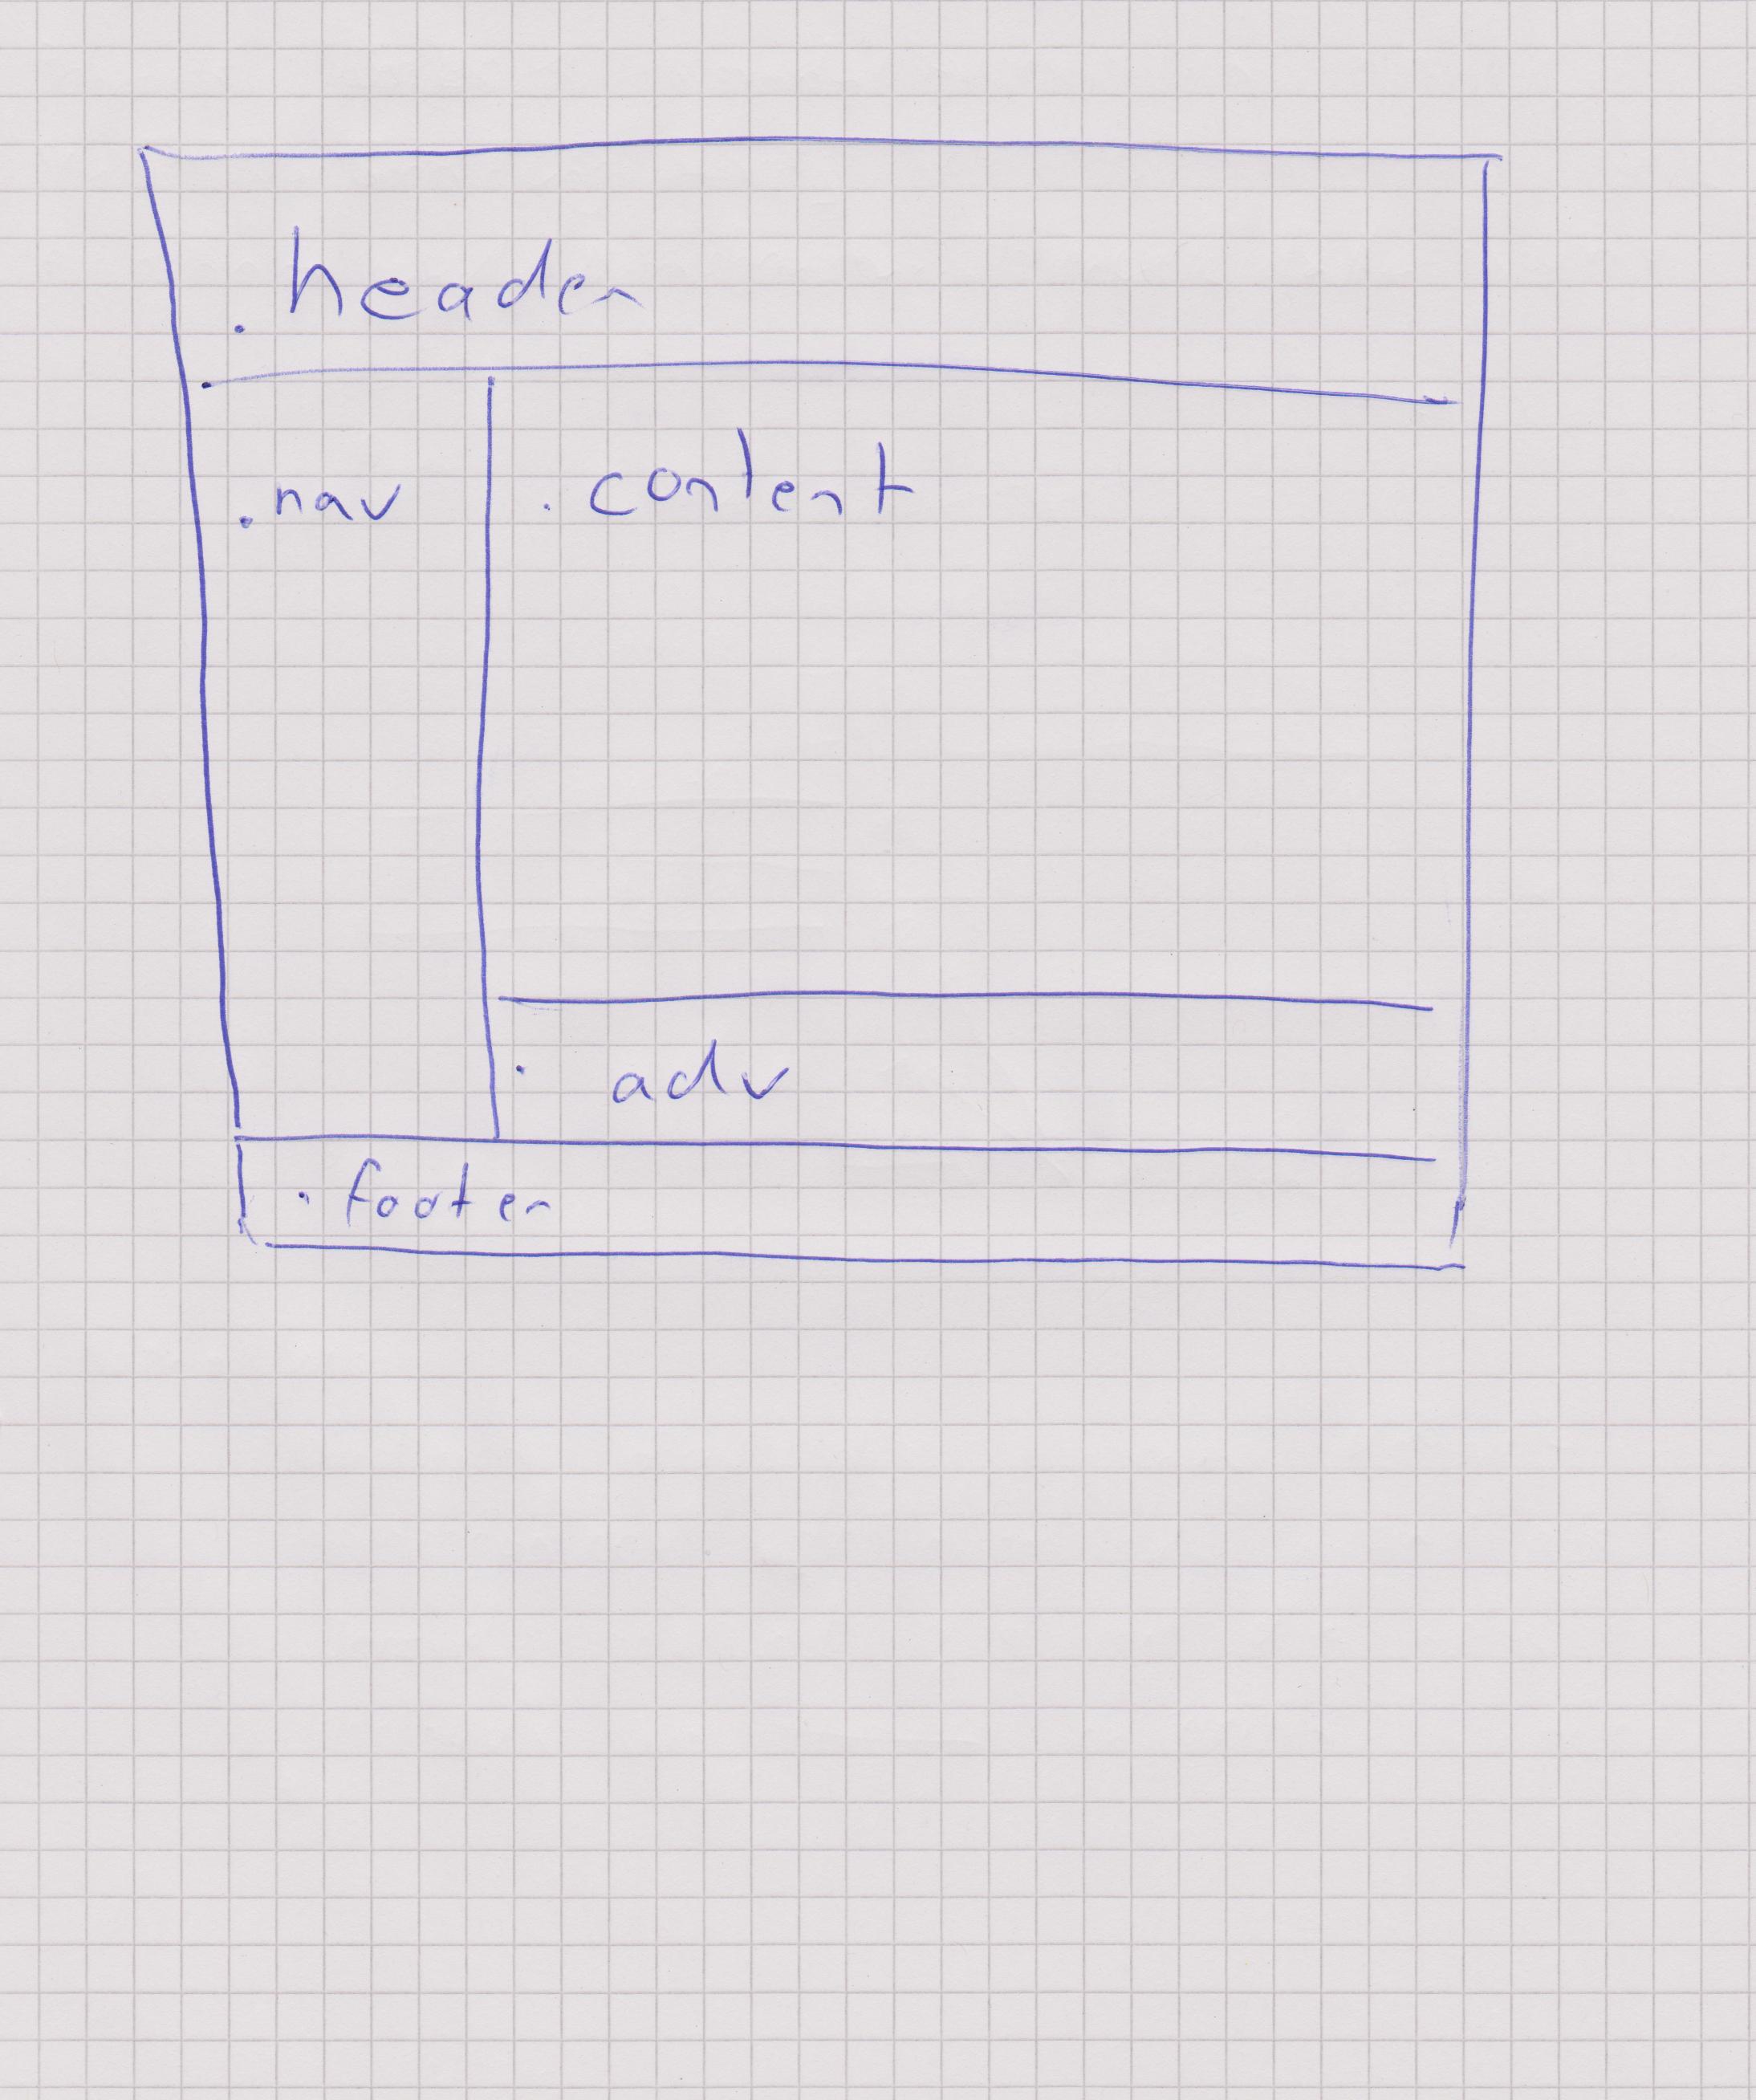 .header
.nav
.content
.adv
.footer